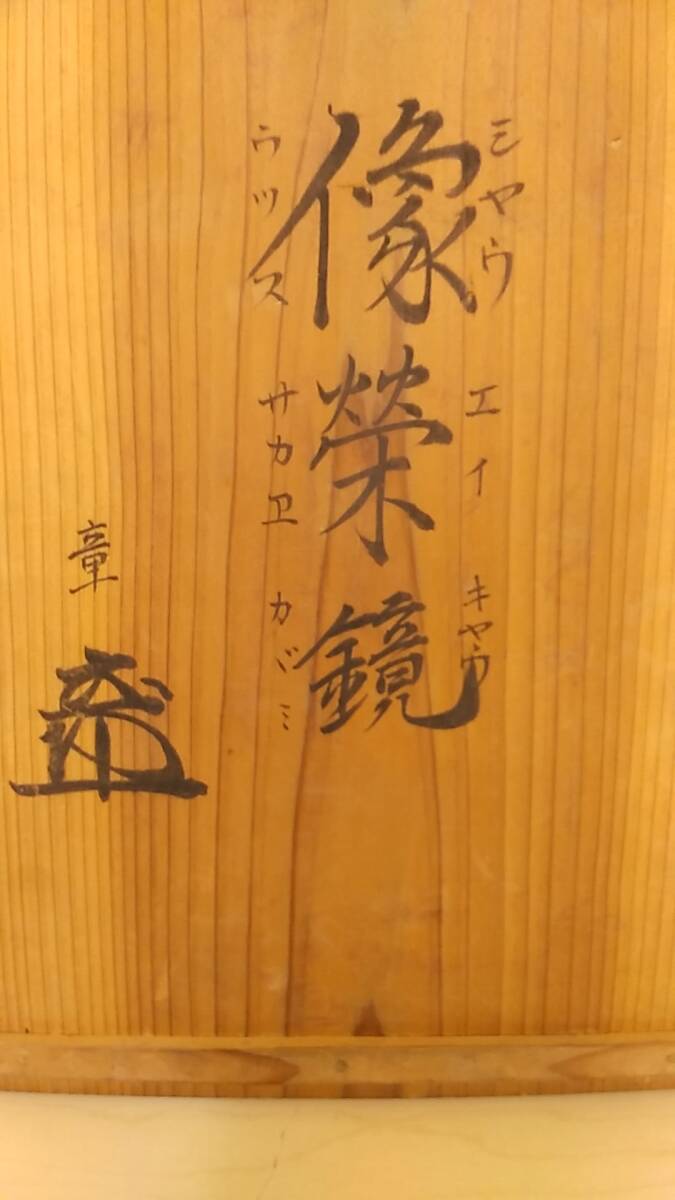 シヤウ エイ キヤウ
像榮鏡
ウツス サカヱ カヾミ
章